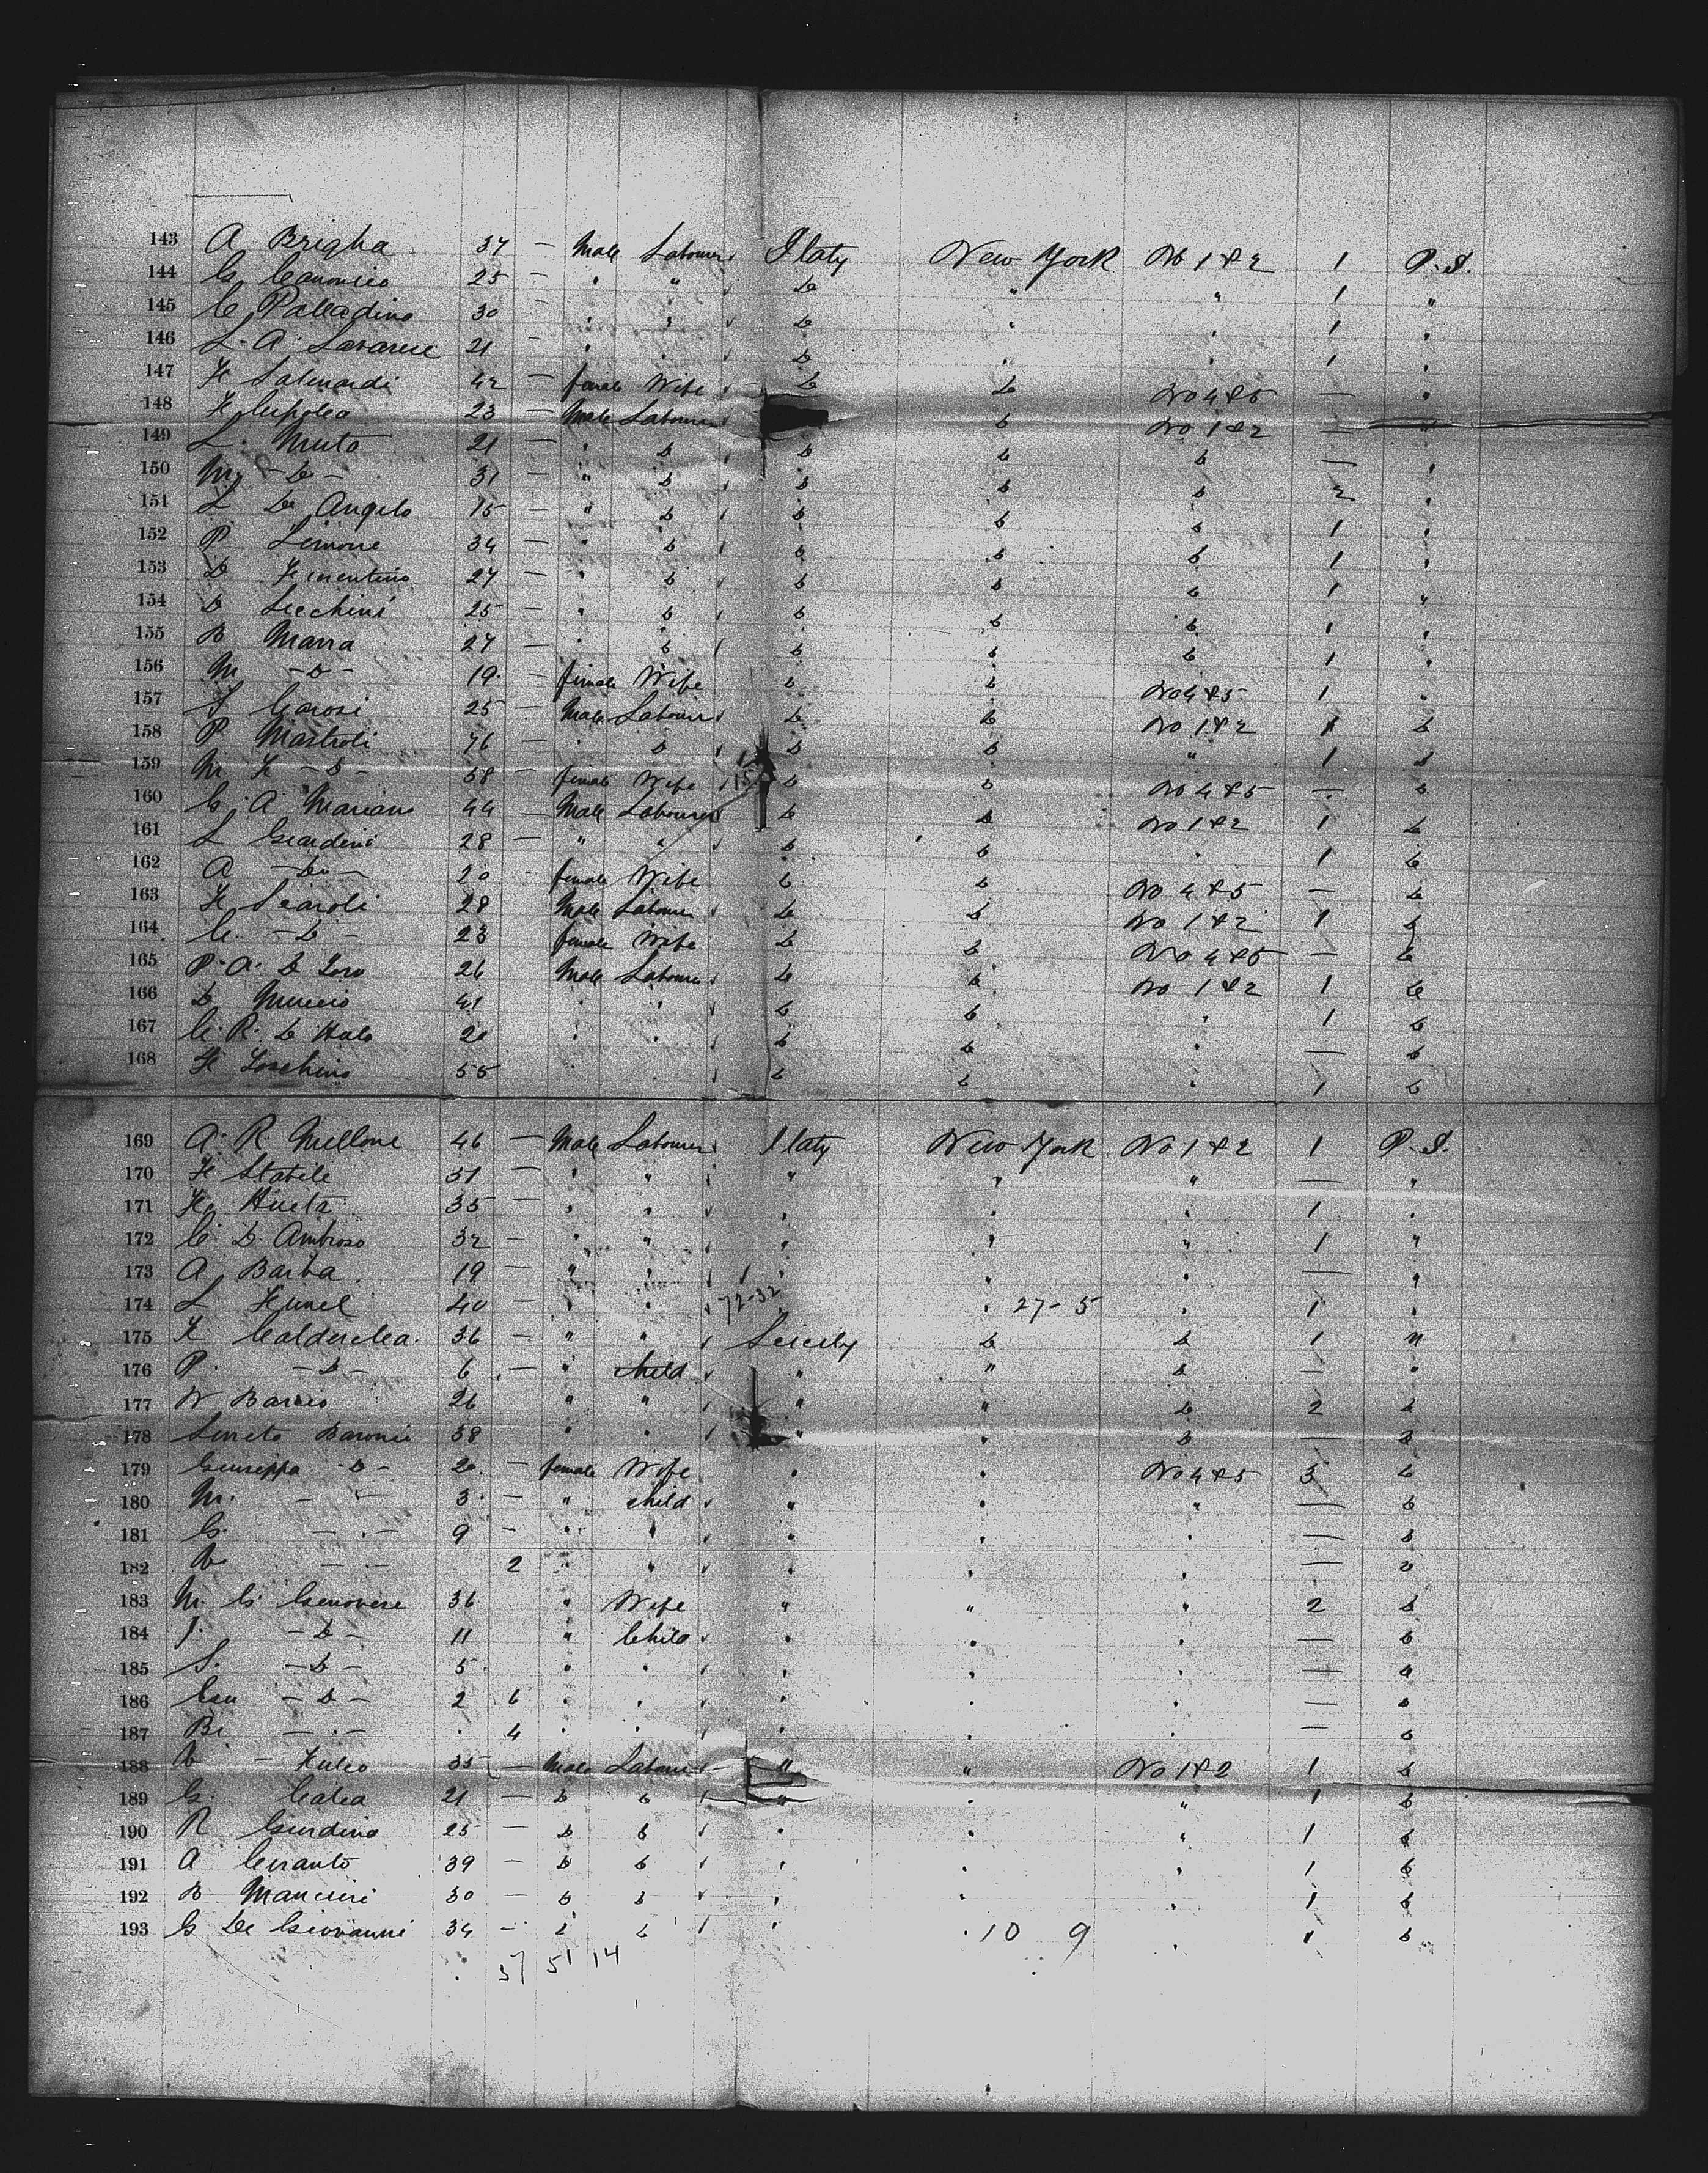 143 A Briglia 37 — Male Labourer Italy New York No 1 & 2 1 P.S.
144 G Canonico 25 — " " Do " " 1 "
145 C Palladino 30 — " " Do " " 1 "
146 L. A. Savarese 21 — " " Do " " 1 "
147 F 42 — female Wife Do Do No 4 & 5 — "
148 F Cupolo 23 — Male Labourer Do No 1 & 2 — "
149 L. Muto 21 — " Do Do Do Do — "
150 M — Do — 31 — " Do Do Do Do 2 "
151 L De Angelo 15 — " Do Do Do Do 1 "
152 P Simone 34 — " Do Do Do Do 1 "
153 D 27 — " Do Do Do Do 1 "
154 D 25 — " Do Do Do Do 1 "
155 B Marra 27 — " Do Do Do Do 1 "
156 M — Do — 19 — female Wife Do Do No 4 & 5 1 "
157 Carosi 25 — Male Labourer Do Do No 1 & 2 1 Do
158 P Mastroti 76 — " Do Do Do " 1 Do
159 M F — Do — 58 — female Wife Do Do No 4 & 5 — Do
160 G. A Mariano 44 — Male Labourer Do Do No 1 & 2 1 Do
161 L Giardini 28 — " " Do Do " 1 Do
162 A — Do — 20 female Wife Do Do No 4 & 5 — Do
163 F Scaroli 28 Male Labourer Do Do No 1 & 2 1 Do
164 C. — Do — 23 female Wife Do Do No 4 & 5 — Do
165 P. A. D 26 Male Labourer Do Do No 1 & 2 1 Do
166 D Muccio 41 " " Do Do " 1 Do
167 C. R. D 20 " " Do Do " — Do
168 F 55 " " Do Do " 1 Do
169 A. R. Mellone 46 — Male Labourer Italy New York No 1 & 2 1 P.S.
170 F Stabele 31 — " " " " " — "
171 F 35 — " " " " " 1 "
172 C D Ambroso 32 — " " " " " 1 "
173 A Barba 19 — " " " " " — "
174 L 40 — " " 72-32 " " 27-5 " 1 "
175 Calderelea 36 — " " Sicily Do Do 1 "
176 P. — Do — 6 — " child " " Do — "
177 N 26 " " " " Do 2 Do
178 Baronie 38 " " " " Do — Do
179 Giuseppa — Do — 20 — female Wife " " No 4 & 5 3 Do
180 M. — " — 3 — " child " " " — Do
181 G. — " — 9 — " " " " " — Do
182 — " — 2 " " " " " — Do
183 M. G Genovese 36 " Wife " " " 2 Do
184 J. — Do — 11 " Child " " " — Do
185 S. — Do — 5 " " " " " — Do
186 — Do — 2 6 " " " " " — Do
187 — " — 4 " " " " " — Do
188 35 — Male Labourer " " No 1 & 2 1 Do
189 G. Calea 21 — Do Do " " " 1 Do
190 R Giurdino 25 — Do Do " " " 1 Do
191 A Cerranto 39 — Do Do " " " 1 Do
192 B Mancieri 30 — Do Do " " " 1 Do
193 G De Giovanni 34 — Do Do " " 10 9 " 1 Do
37 51 14